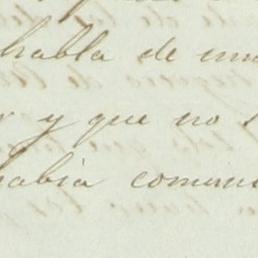 habla de un
y que no
habia comuni